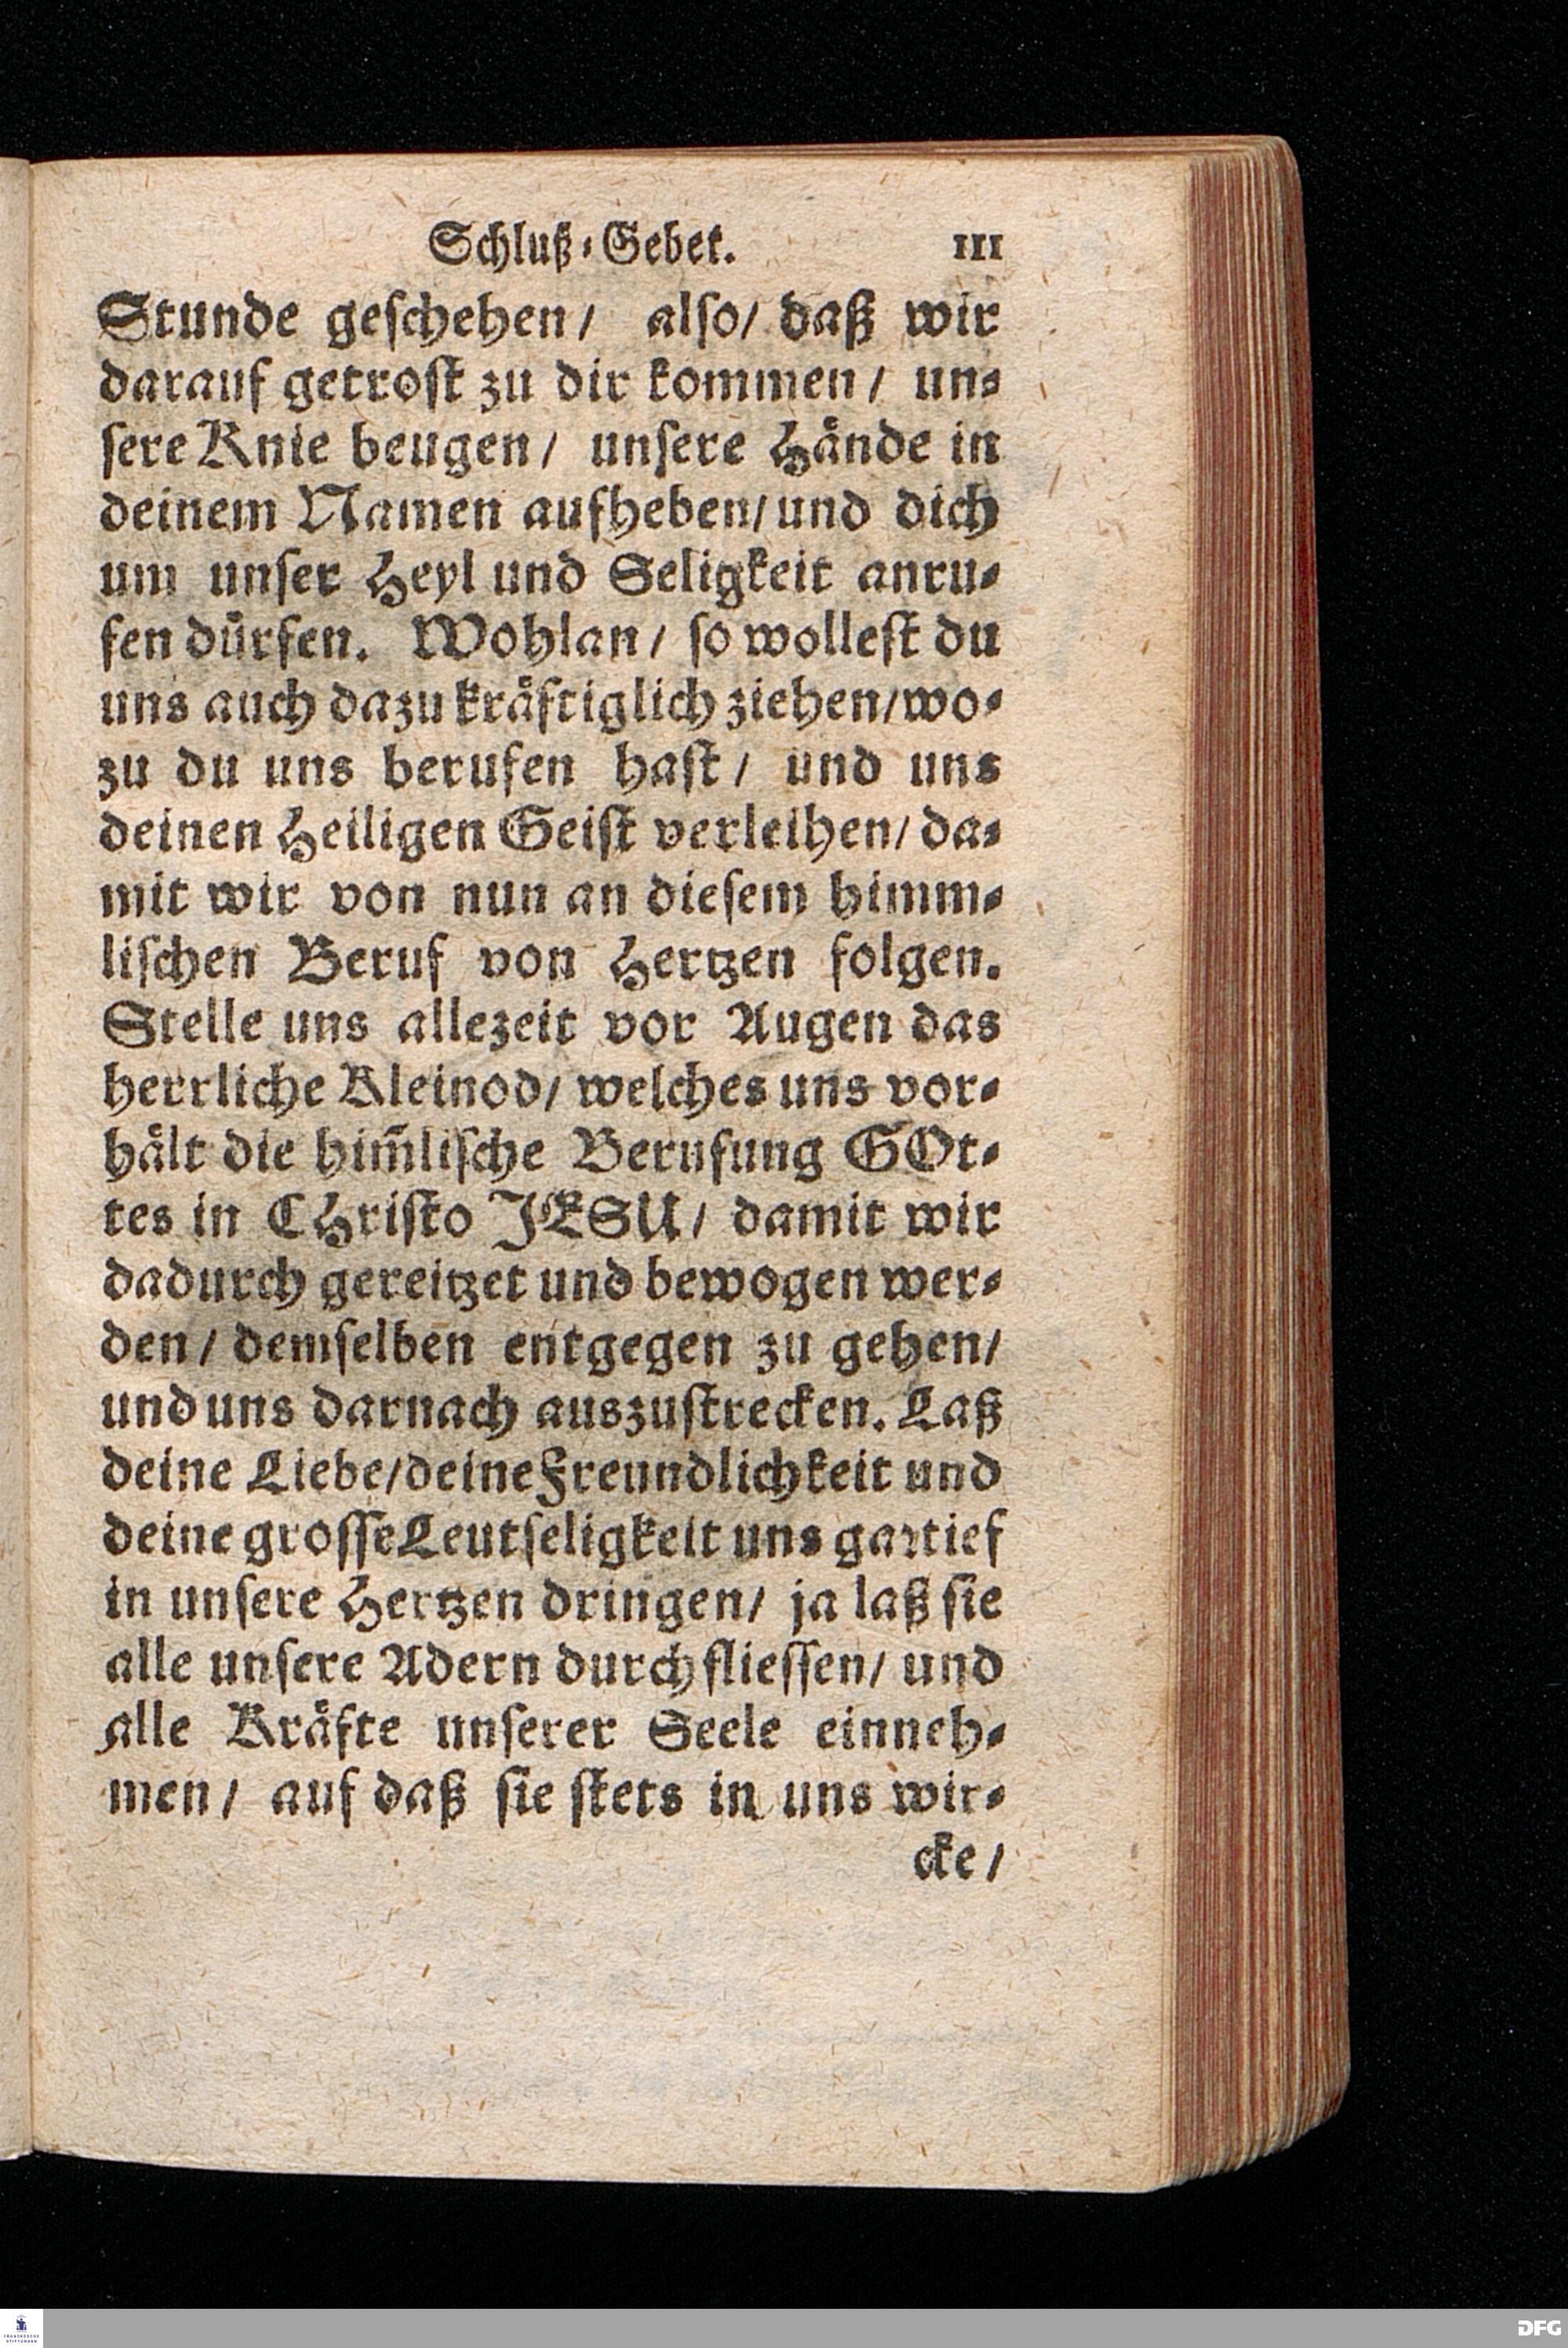 Schluß-Gebet. 111
Stunde geschehen/ also/ daß wir
darauf getrost zu dir kommen/ un-
sere Knie beugen/ unsere Hände in
deinem Namen aufheben/ und dich
um unser Heyl und Seligkeit anru-
fen dürfen. Wohlan/ so wollest du
uns auch dazu kräftiglich ziehen/ wo-
zu du uns berufen hast/ und uns
deinen Heiligen Geist verleihen/ da-
mit wir von nun an diesem himm-
lischen Beruf von Hertzen folgen.
Stelle uns allezeit vor Augen das
herrliche Kleinod/ welches uns vor-
hält die him̃lische Berufung GOt-
tes in CHristo JESU/ damit wir
dadurch gereitzet und bewogen wer-
den/ demselben entgegen zu gehen/
und uns darnach auszustrecken. Laß
deine Liebe/ deine Freundlichkeit und
deine grosse Leutseligkeit uns gar tief
in unsere Hertzen dringen/ ja laß sie
alle unsere Adern durchfliessen/ und
alle Kräfte unserer Seele einneh-
men/ auf daß sie stets in uns wir-
cke/
FRANCKESCHE
STIFTUNGEN
DFG